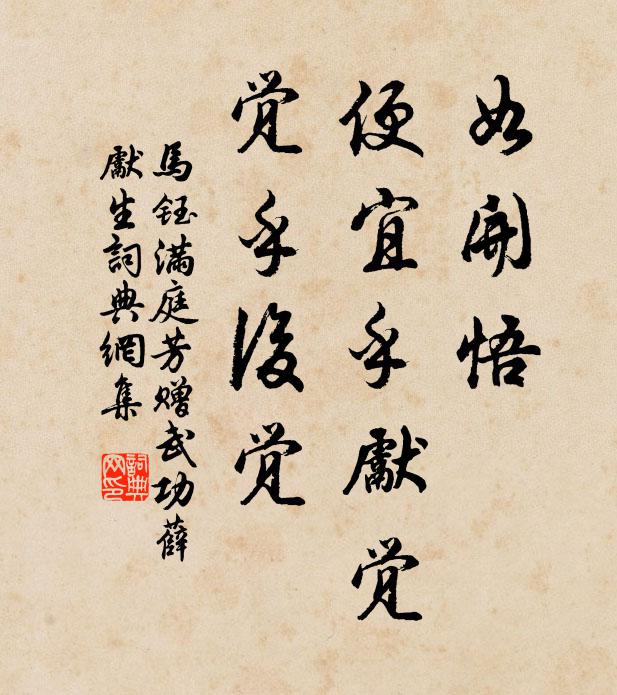 如開悟
便宜乎獻觉
觉乎後觉
馬鈺滿庭芳赠武功薛
獻生詞典網集
詞典网印